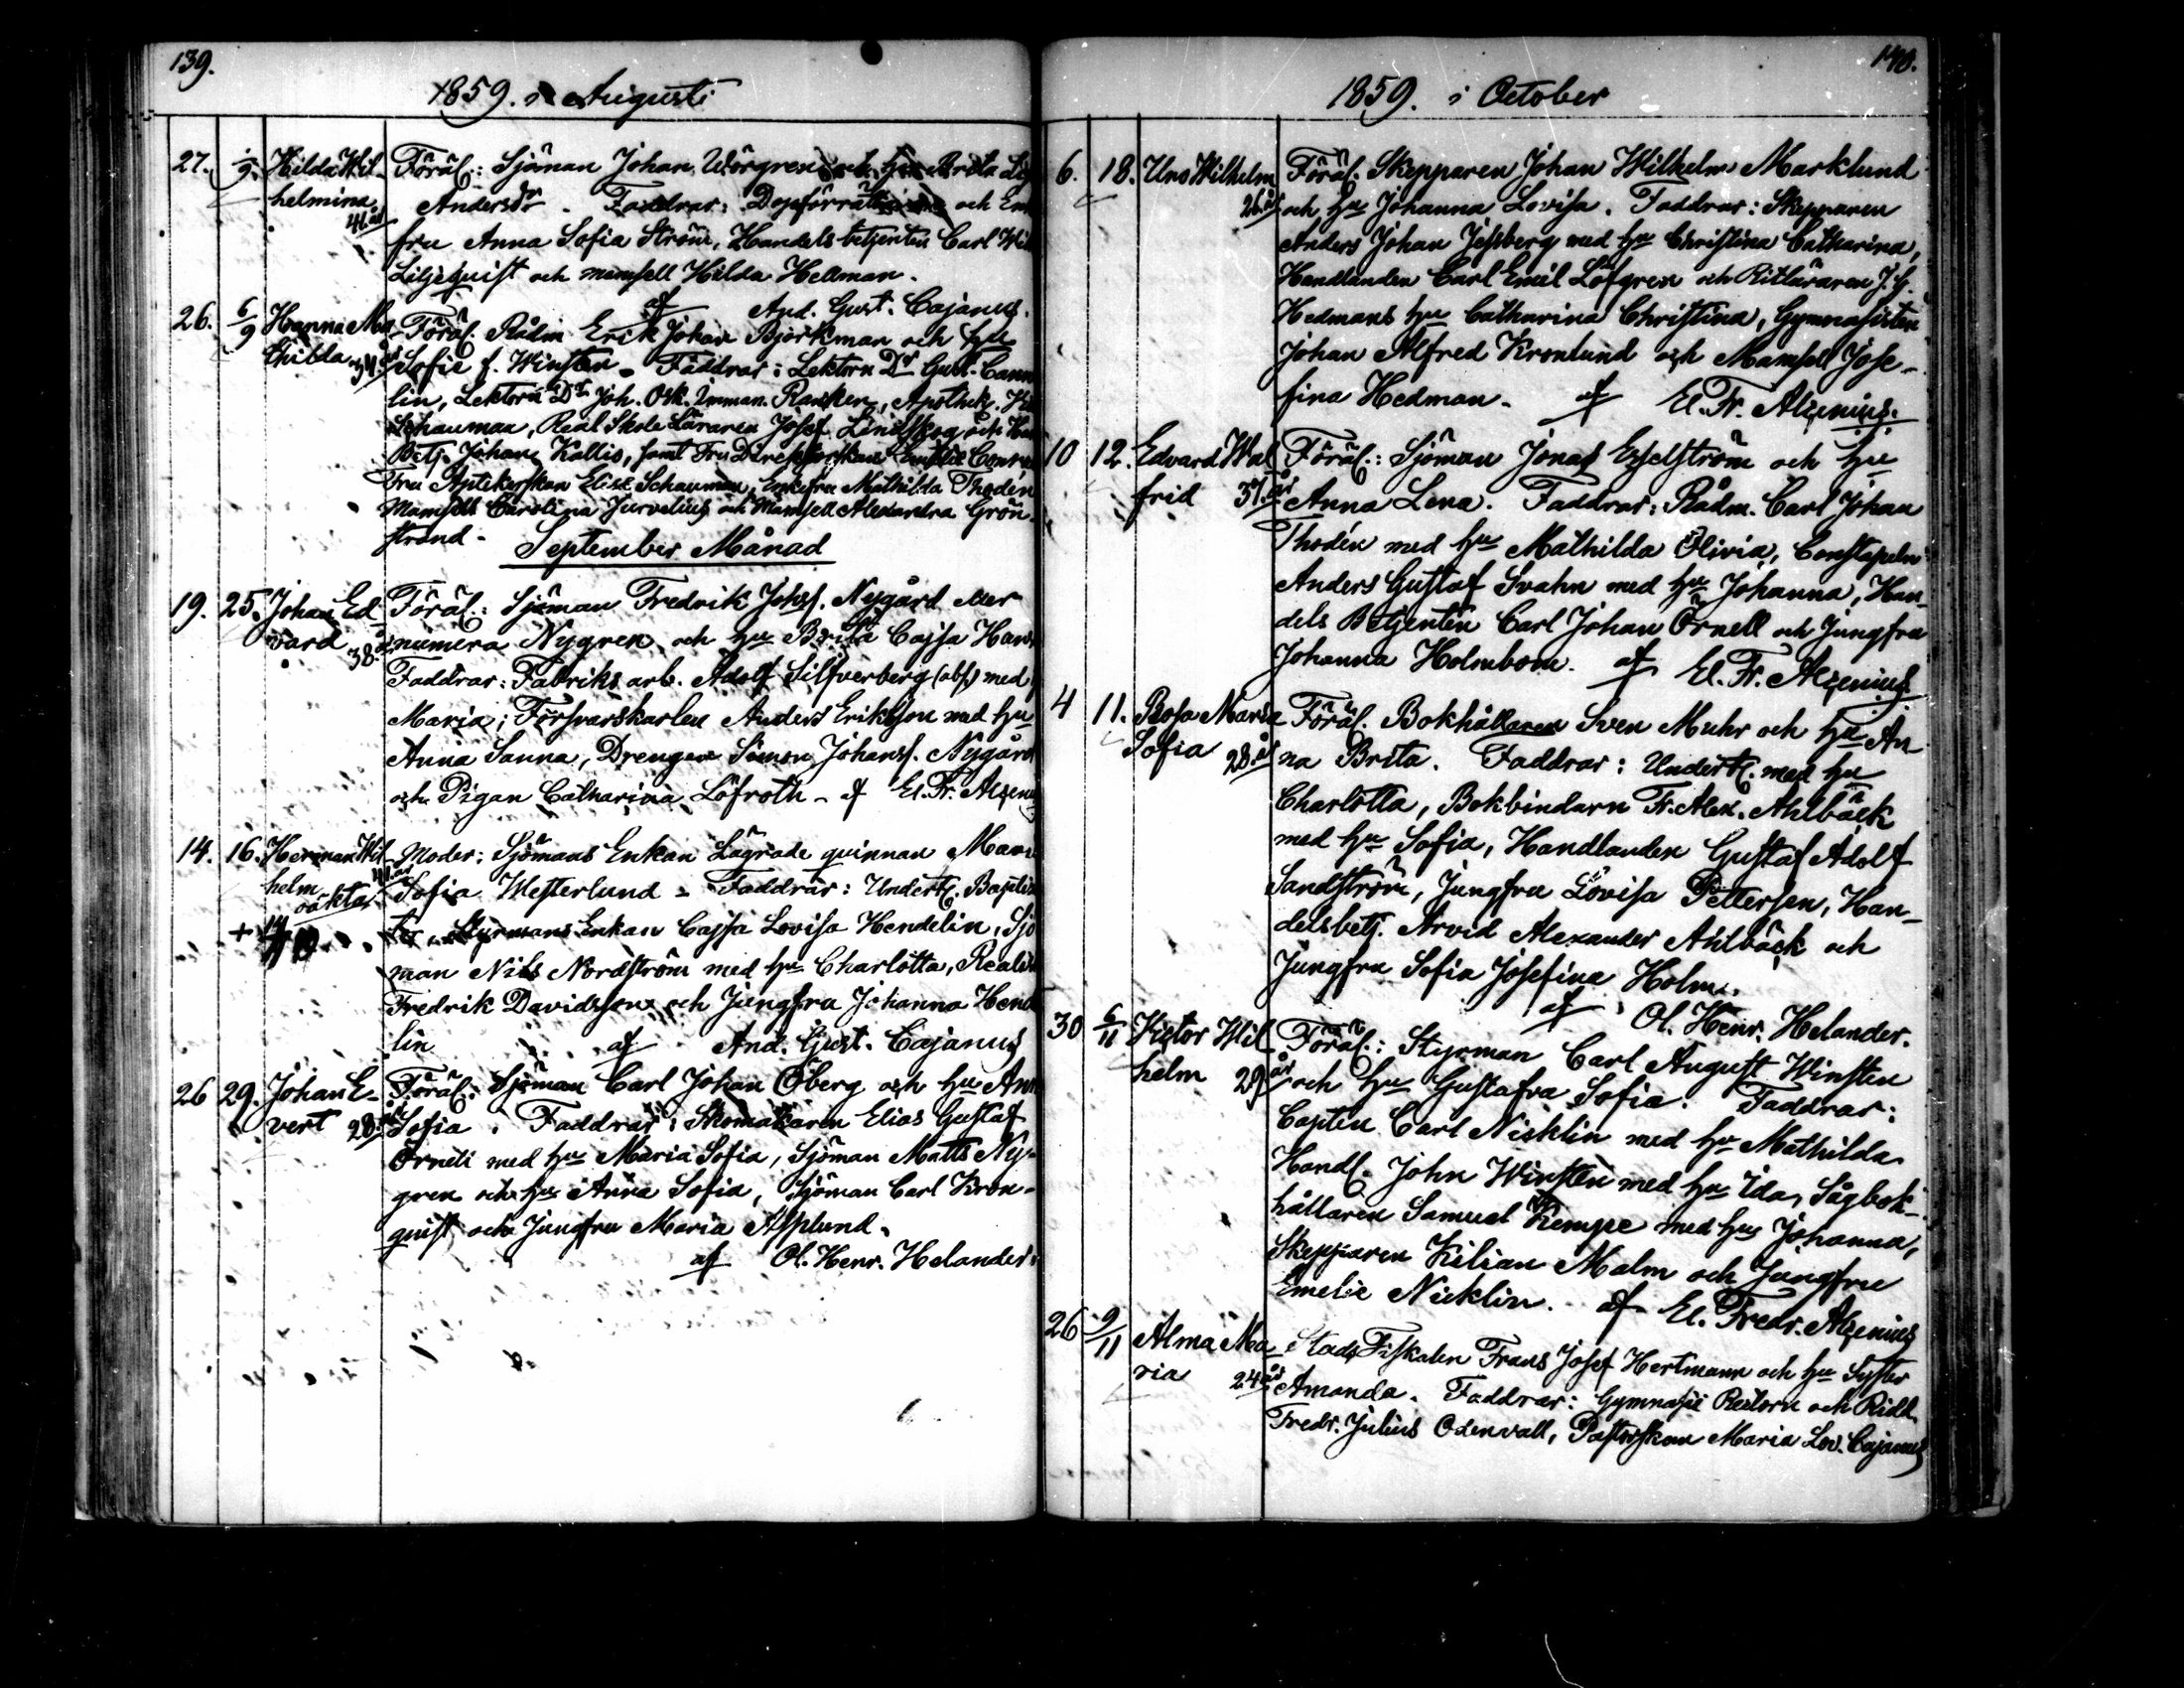 139.
1859. i Augusti
27. 1/9. Hilda Wil- Föräl.: Sjöman Johan Wörgren och hu Brita
helmina 41 år Andersdr. Faddrar: och
fru Anna Sofia Ström, Handels betjenten Carl
Liljequist och mamsell Hilda Hellman.
af And. Gust. Cajanus.
26. 6/9 Hanna Ma- Föräl. Rådm Erik Johan Björkman och hu
thilda 34 år Sofie f. Winsten. Faddrar: Lektorn Dr Gust.
lin, Lektorn Dr Joh. Osk. Imman. Rancken, Apothek.
Schauman, Real Skole Läraren Josef Lindskog och
Betj. Johan Kallis, samt Fru Emelie
Fru Aptekerskan Elise Schauman, Enkefru Mathilda Thodén
Mamsell Carolina Jurvelius och Mamsell Alexandra Grön-
strand.
September Månad
19. 25. Johan Ed- Föräl.: Sjöman Fredrik Johsf. Nygård eller
vard 38 år numera Nygren och hu Brita Cajsa
Faddrar: Fabriks arb. Adolf Silfverberg (abs) med
Maria; Försvarskarlen Anders Eriksson med hu
Anna Sanna, Drengen Simon Johansf. Nygård
och Pigan Catharina Löfroth - af El. Fr.
14. 16. Herman Wil- Moder: Sjömans Enkan Lägrade qvinnan
helm 41 år Sofia Westerlund - Faddrar: Undert.
oäkta
+ Styrmans Enkan Cajsa Lovisa Hendelin, Sjö
man Nils Nordström med hu Charlotta,
Fredrik Davidsson och Jungfru Johanna
lin af And. Gust. Cajanus
26 29. Johan E- Föräl. Sjöman Carl Johan Öberg och hu
vert 28 år Sofia. Faddrar: Skomakaren Elias Gustaf
Örnell med hu Maria Sofia, Sjöman Matts Ny-
gren och hu Anna Sofia, Sjöman Carl Kron-
quist och Jungfru Maria Asplund.
af Ol. Henr. Helander.
140.
1859. i October
6. 18. Uno Wilhelm Föräl. Skepparen Johan Wilhelm Marklund
26 år och hu Johanna Lovisa. Faddrar: Skepparen
Anders Johan med hu Christina Catharina,
Handlanden Carl Emil Löfgren och Ritläraren J. G.
Hedmans hu Catharina Christina, Gymnasisten
Johan Alfred Kronlund och Mamsell Jose-
fina Hedman. af El. Fr. Alcenius.
10 12. Edvard Wal- Föräl.: Sjöman Jonas och hu
frid 37 år Anna Lena. Faddrar: Rådm. Carl Johan
Thodén med hu Mathilda Olivia, Constapeln
Anders Gustaf Svahn med hu Johanna, Han-
dels Betjenten Carl Johan Örnell och Jungfru
Johanna Holmbom. af El. Fr. Alcenius.
4 11. Rosa Maria Föräl. Bokhållaren Sven Muhr och hu An-
Sofia 28 år na Brita. Faddrar: Undert. med hu
Charlotta, Bokbindarn Fr. Alex. Ahlbäck
med hu Sofia, Handlanden Gustaf Adolf
Sandström, Jungfru Lovisa Pettersen, Han-
delsbetj. Arvid Alexander Ahlbäck och
Jungfru Sofia Josefina Holm.
af Ol. Henr. Helander.
30 6/11 Victor Wil- Föräl.: Styrman Carl August Winsten
helm 29 år och hu Gustafva Sofia. Faddrar:
Capten Carl Nicklin med hu Mathilda
Handl. John Winsten med hu Ida, Sågbok-
hållaren Samuel Kempe med hu Johanna,
Skepparen Kilian Malm och Jungfru
Emelie Nicklin. af El. Fredr. Alcenius
26 9/11 Alma Ma- Stads Fiskalen Frans Josef Hertmann och hu
ria 24 år Amanda. Faddrar: Gymnasii Rectorn och Ridd.
Fredr. Julius Odenvall, Pastorskan Maria Lov. Cajanus